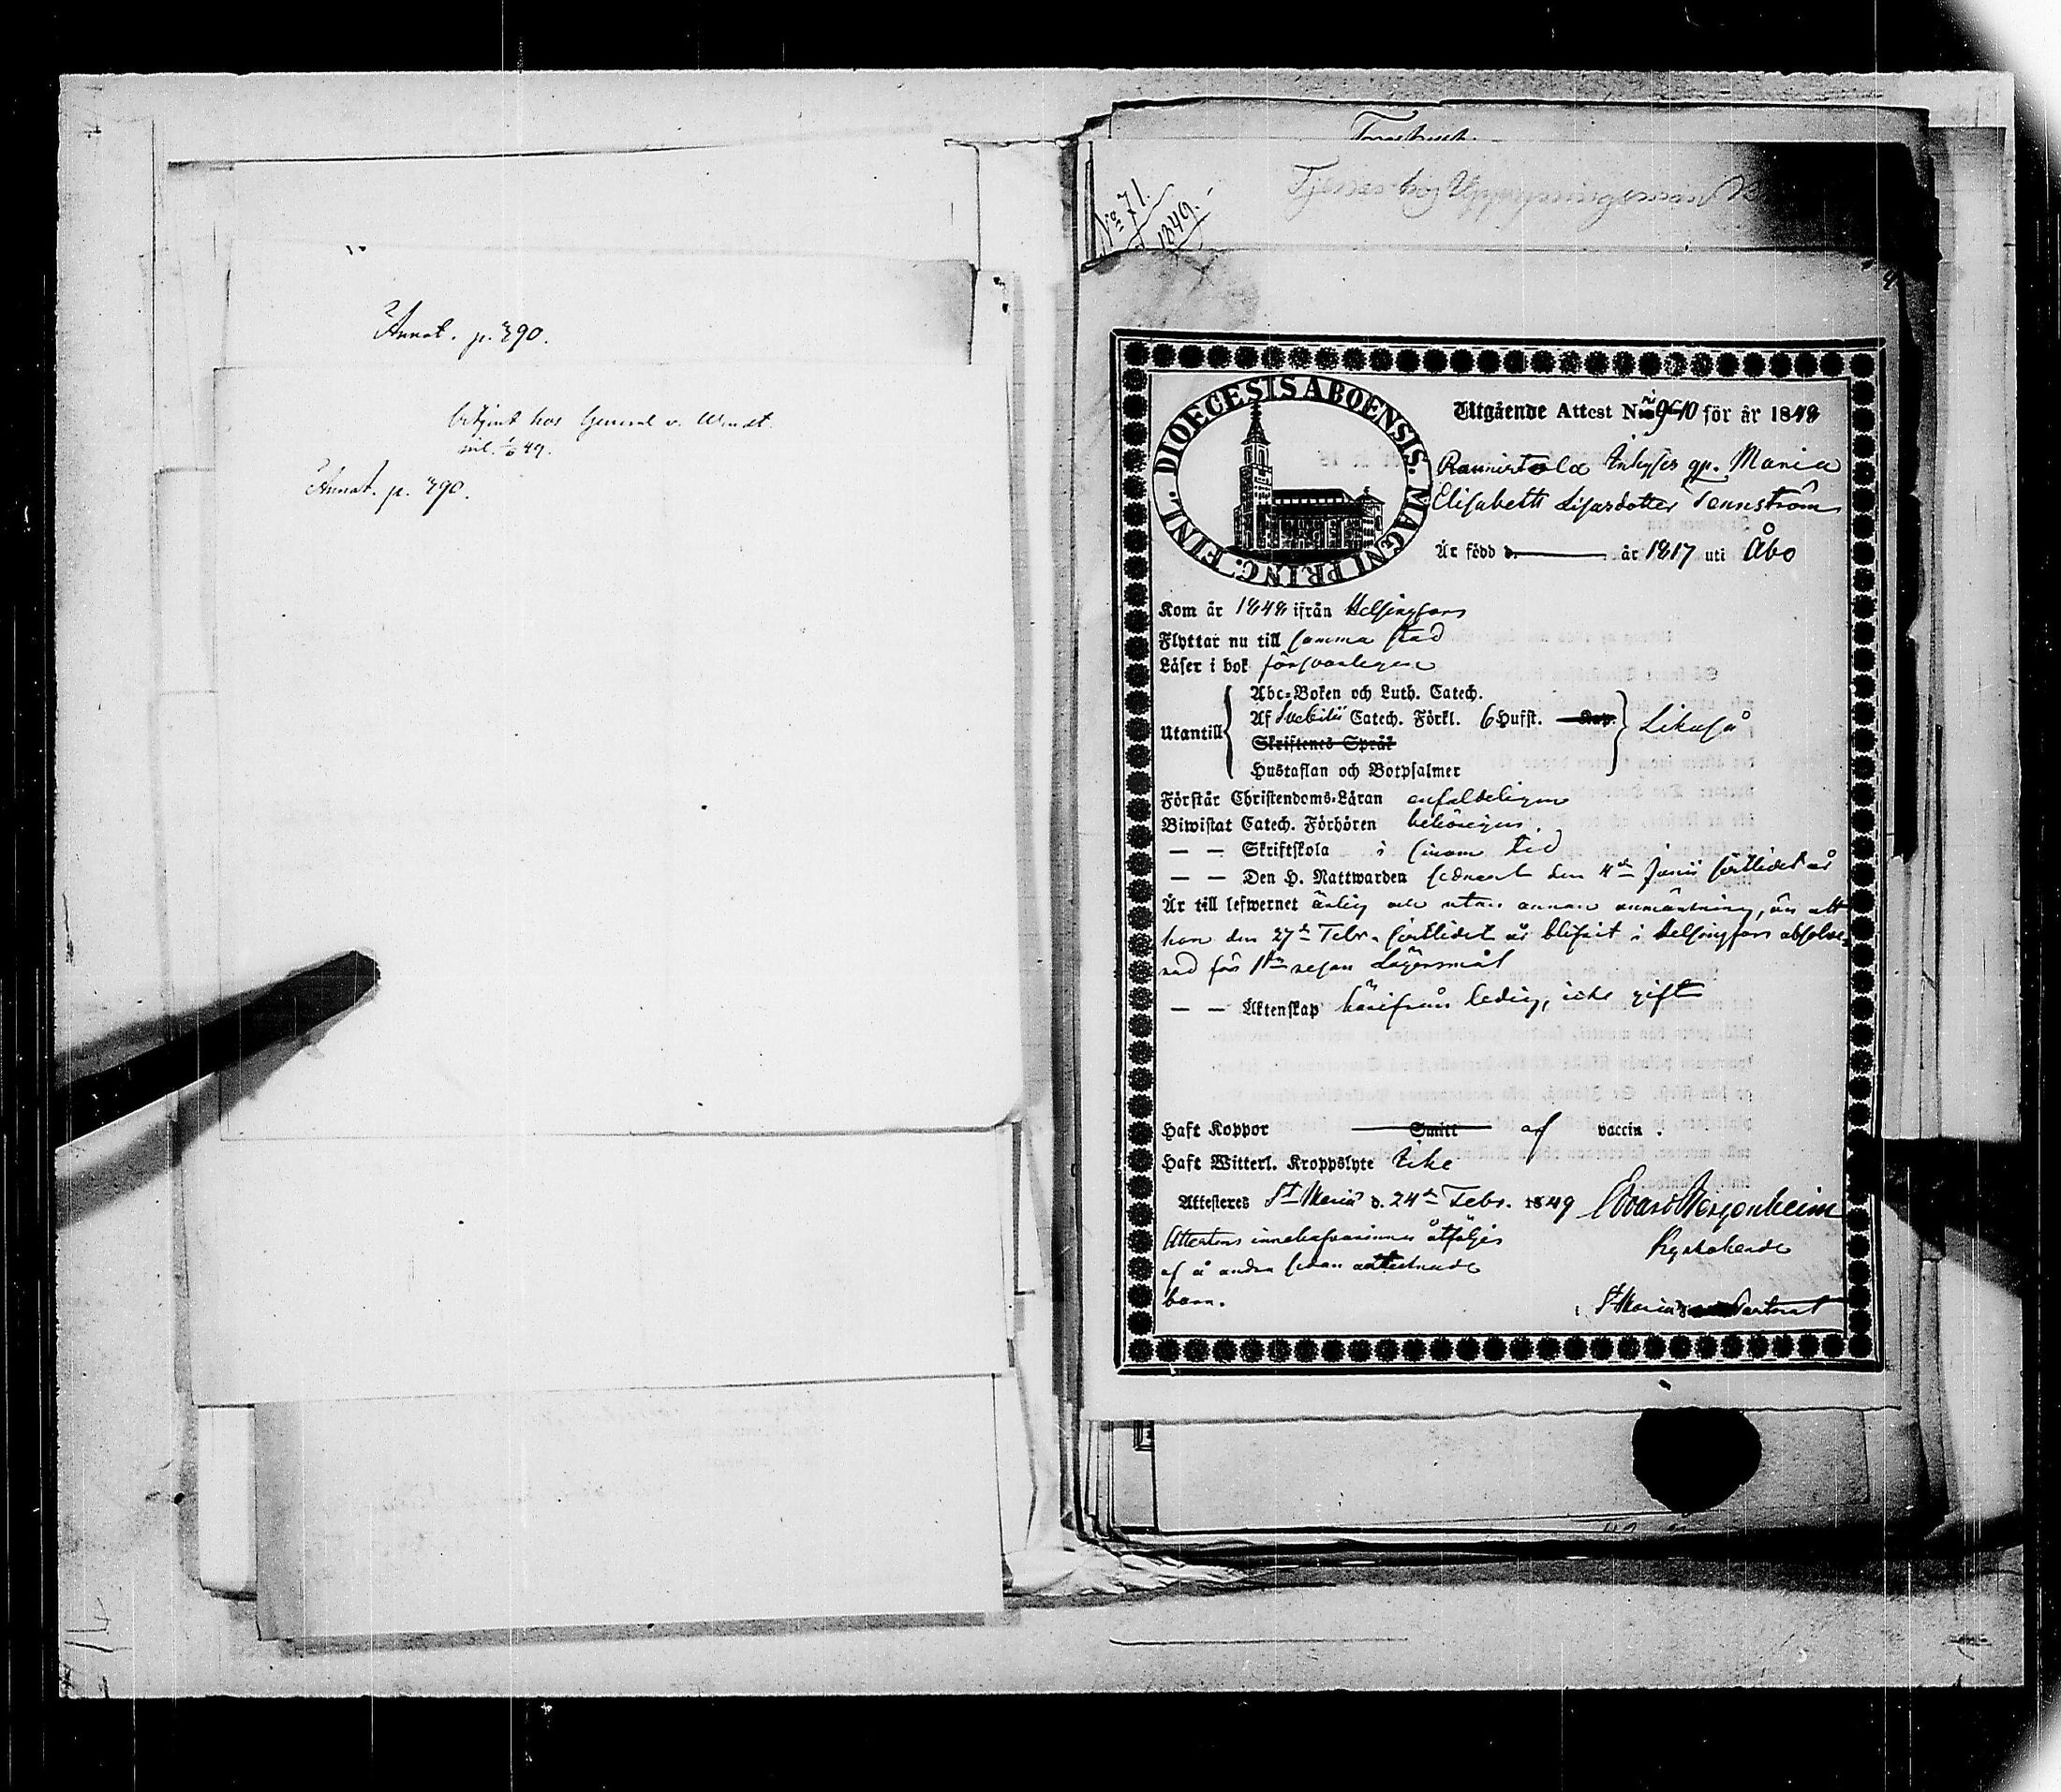 Annot. p. 790.
betjent hos General v. Wendt.
Annot. p. 790.
No 71.
1849.
Tjenar hos
DIOECESIS ABOENSIS. MAGNI PRINC. FINL.
Utgående Attest No 9-10 för år 1848
Inhyses qp. Maria
Elisabeth Lisasdotter Tennström
Är född d. år 1817 uti Åbo
Kom år 1848 ifrån Helsingfors
Flyttar nu till samma stad
Läser i bok försvarligen
Abc-Boken och Luth. Catech.
Utantill Af Svebilii Catech. Förkl. 6 Hufst. Kap. Likaså
Skriftenes Språk
Hustaflan och Botpsalmer
Förstår Christendoms-Läran enfaldeligen
Biwistat Catech. Förhören behörigen.
— — Skriftskola i sinom tid
— — Den H. Nattwarden sednast den 4de Junii sistlidet år
Är till lefwernet ärlig och utan annan anmärkning, än att
hon den 27de Febr. sistlidet år blifvit i Helsingfors absolve-
rad för 1sta resan Lägersmål
— — Äktenskap härifrån ledig, icke gift
Haft Koppor Smitt af vaccin.
Haft Witterl. Kroppslyte Icke
Attesteres St Mariæ d. 24de Febr. 1849 Edvard Bergenheim
Attestens innehafvarinna åtföljes Kyrkoherde
af å andra sidan antecknade
barn. i St Mariæ Pastorat